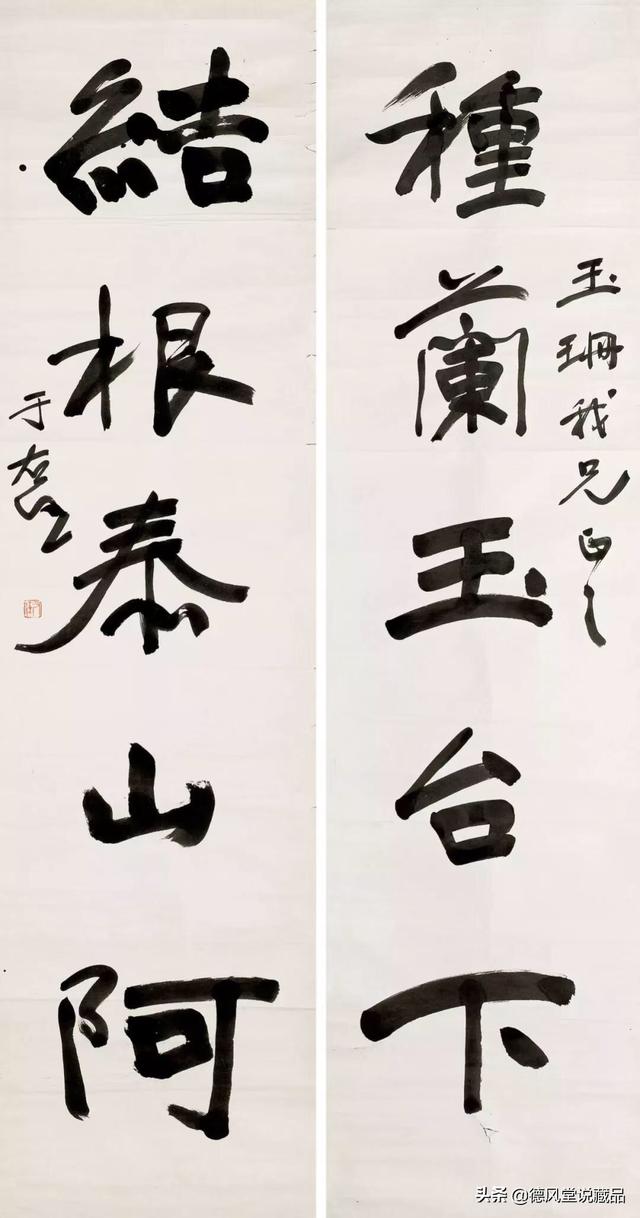 玉珊我兄正之
種蘭玉台下
結根泰山阿
于右任
头条 @德风堂说藏品